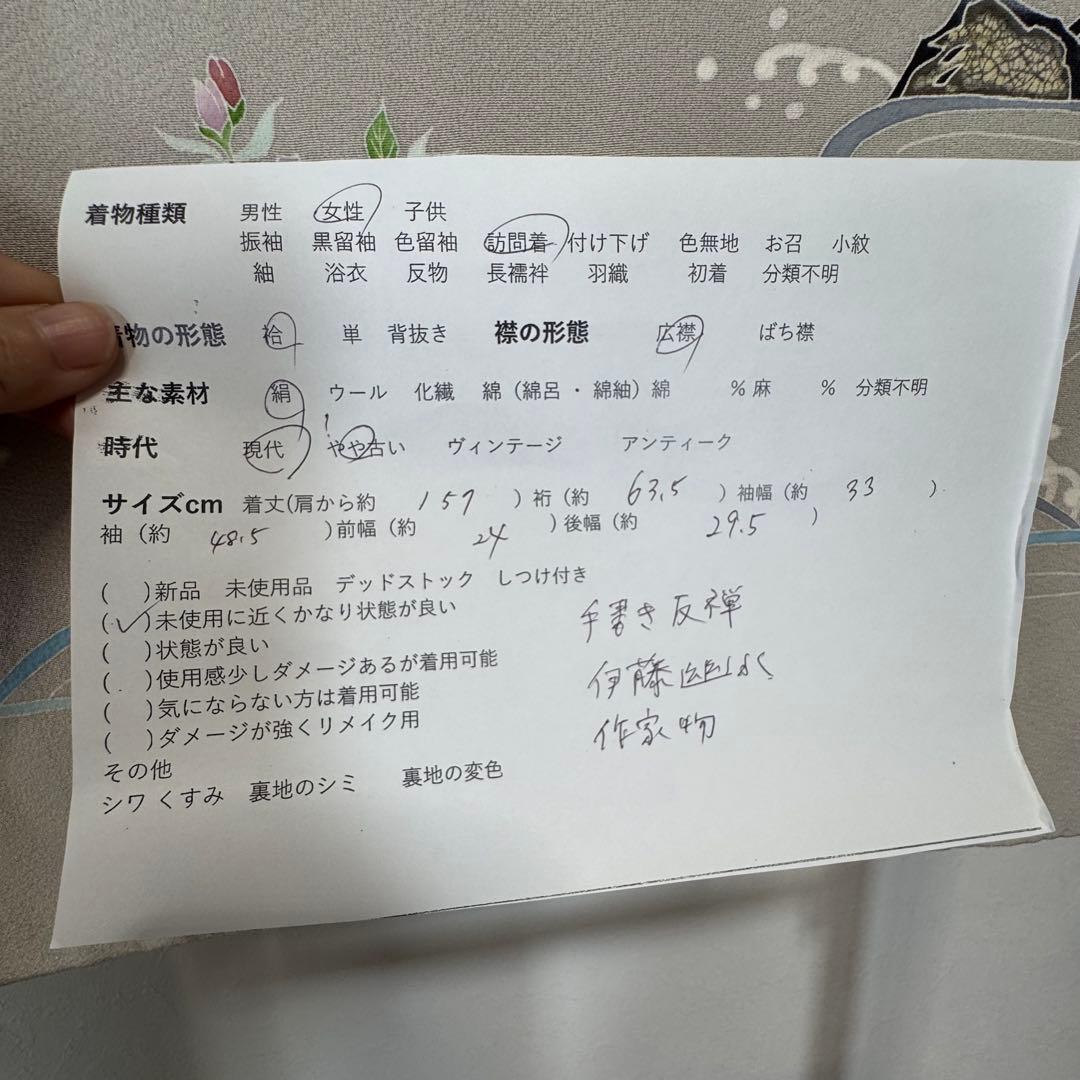 着物種類 男性 女性 子供
振袖 黒留袖 色留袖 訪問着 付け下げ 色無地 お召 小紋
紬 浴衣 反物 長襦袢 羽織 初着 分類不明
着物の形態 袷 単 背抜き 襟の形態 広襟 ばち襟
主な素材 絹 ウール 化繊 綿（綿呂・綿紬）綿 % 麻 % 分類不明
時代 現代 やや古い ヴィンテージ アンティーク
サイズcm 着丈(肩から約 157 ）裄（約 63.5 ）袖幅（約 33 ）
袖（約 48.5 )前幅（約 24 )後幅（約 29.5 )
( )新品 未使用品 デッドストック しつけ付き
(✓)未使用に近くかなり状態が良い
( )状態が良い
( )使用感少しダメージあるが着用可能
( )気にならない方は着用可能
( )ダメージが強くリメイク用
その他
シワ くすみ 裏地のシミ 裏地の変色
手書き反禅
伊藤 水
作家物